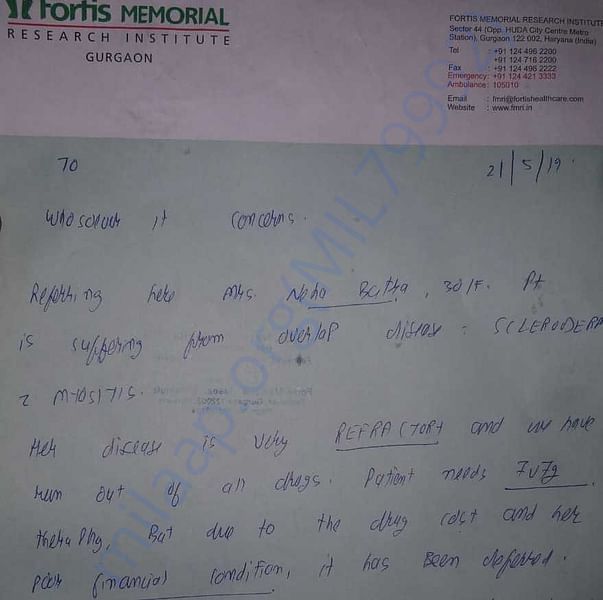 fortis MEMORIAL
RESEARCH INSTITUTE
GURGAON
FORTIS MEMORIAL RESEARCH INSTITUTE
Sector 44 (Opp. HUDA City Centre Metro
Station), Gurgaon 122 002, Haryana (India)
Tel : +91 124 496 2200
+91 124 716 2200
Fax : +91 124 496 2222
Emergency: +91 124 421 3333
Ambulance: 105010
Email : fmri@fortishealthcare.com
Website : www.fmri.in
21/5/19
TO
whosoever it concerns.
Referring here Mrs. Neha Batra, 30/F. Pt
is suffering from overlap disease : SCLERODERMA
c MYOSITIS.
Her disease is very REFRACTORY and we have
run out of all drugs. Patient needs IVIg
therapy, But due to the drug cost and her
poor financial condition, it has been deferred.
milaap.org/MIL79992